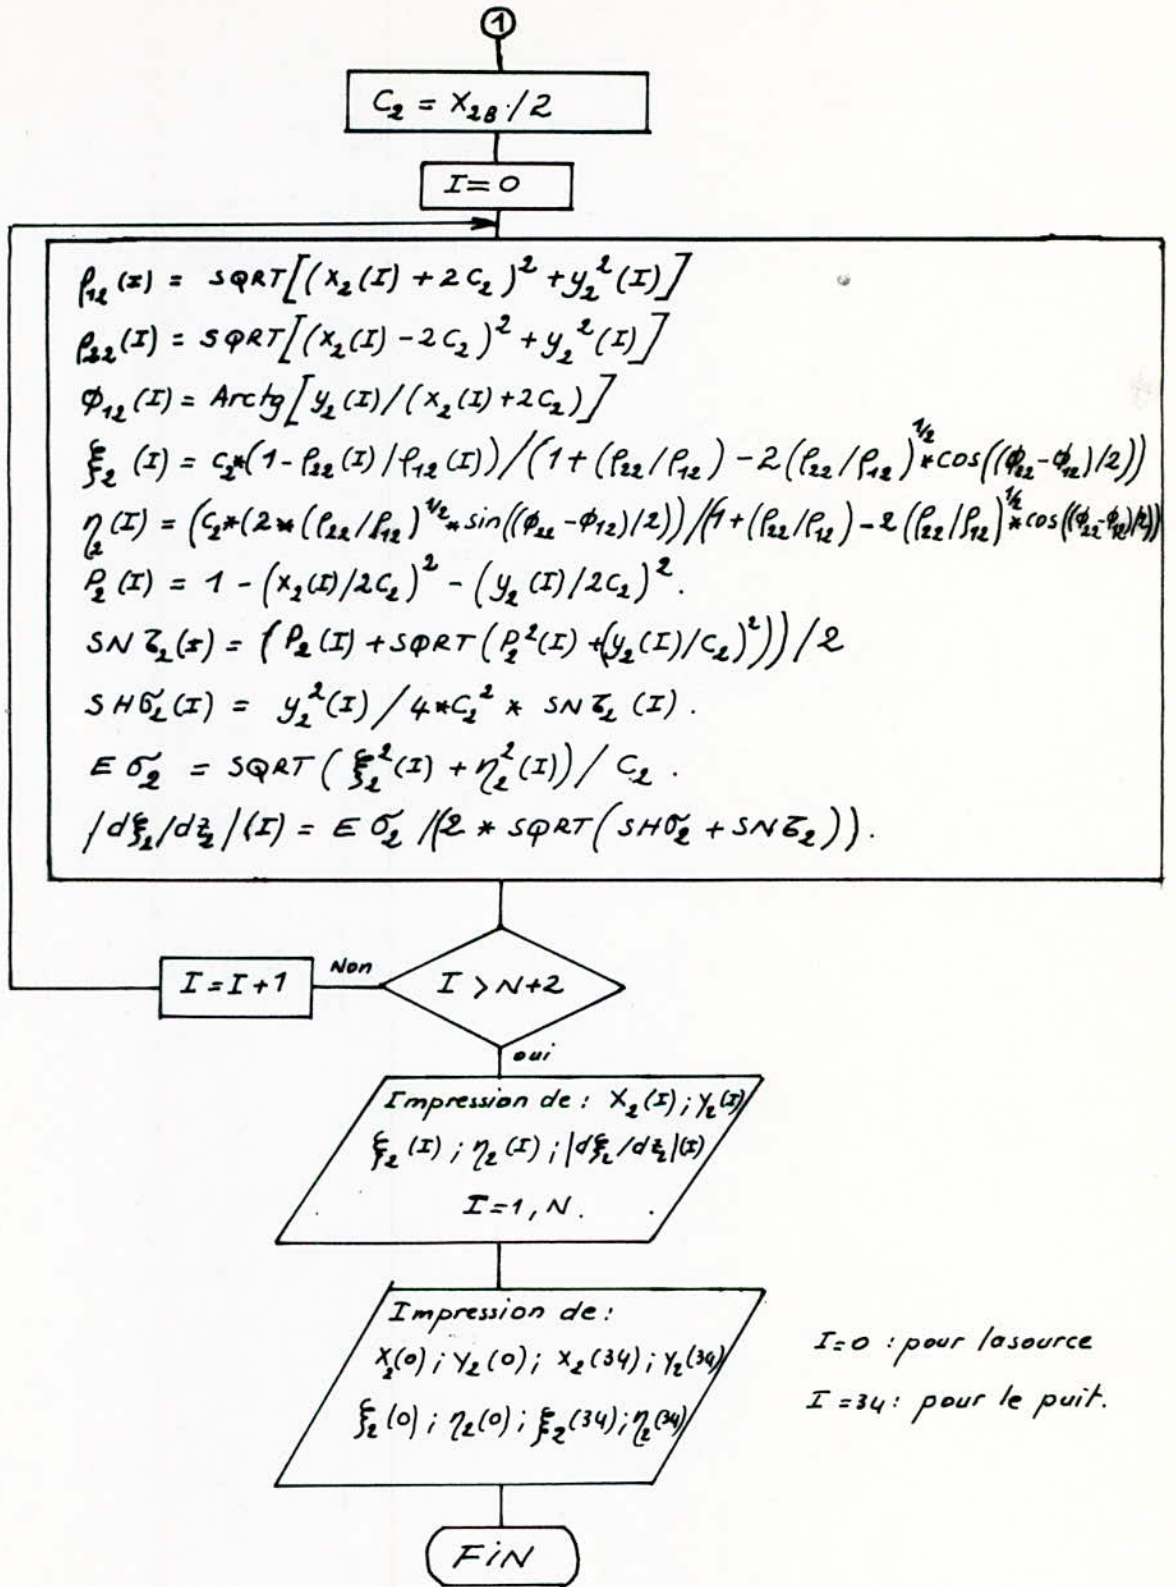 1
C₂ = X₂B./2
I=0
ρ₁₂(I) = SQRT[(X₂(I) + 2C₂)² + y₂²(I)]
ρ₂₂(I) = SQRT[(X₂(I) - 2C₂)² + y₂²(I)]
ϕ₁₂(I) = Arctg[y₂(I)/(X₂(I)+2C₂)]
ξ₂(I) = C₂*(1-ρ₂₂(I)/ρ₁₂(I))/(1+(ρ₂₂/ρ₁₂)-2(ρ₂₂/ρ₁₂)^1/2*cos((ϕ₂₂-ϕ₁₂)/2))
η₂(I) = (C₂*(2*(ρ₂₂/ρ₁₂)^1/2*sin((ϕ₂₂-ϕ₁₂)/2))/(1+(ρ₂₂/ρ₁₂)-2(ρ₂₂/ρ₁₂)^1/2*cos((ϕ₂₂-ϕ₁₂)/2))
P₂(I) = 1-(X₂(I)/2C₂)² - (y₂(I)/2C₂)².
SNζ₂(I) = (P₂(I)+SQRT(P₂²(I)+(y₂(I)/C₂)²))/2
SHσ₂(I) = y₂²(I)/4*C₂² * SNζ₂(I).
Eσ₂ = SQRT(ξ₂²(I)+η₂²(I))/C₂.
|dξ₂/dz₂|(I) = Eσ₂/(2*SQRT(SHσ₂+SNζ₂)).
I=I+1
Non
I>N+2
oui
Impression de: X₂(I); Y₂(I)
ξ₂(I); η₂(I); |dξ₂/dz₂|(I)
I=1, N.
Impression de:
X₂(0); Y₂(0); X₂(34); Y₂(34)
ξ₂(0); η₂(0); ξ₂(34); η₂(34)
I=0 : pour lasource
I=34: pour le puit.
FiN